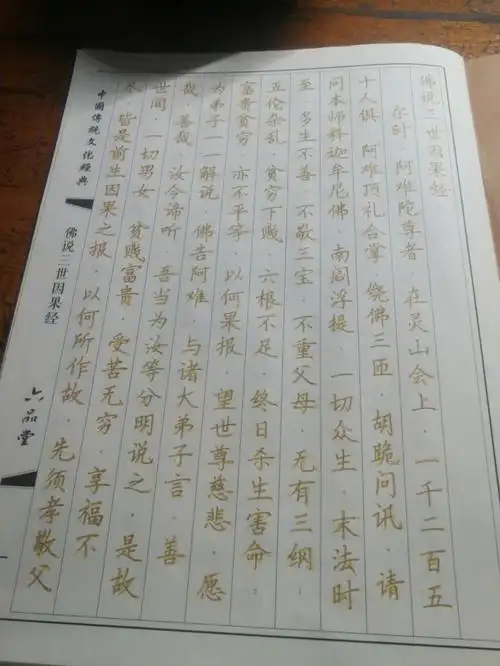 佛说三世因果经
尔时·阿难陀尊者·在灵山会上·一千二百五
十人俱·阿难顶礼合掌·绕佛三匝·胡跪问讯·请
问本师释迦牟尼佛·南阎浮提·一切众生·末法时
至·多生不善·不敬三宝·不重父母·无有三纲·
五伦杂乱·贫穷下贱·六根不足·终日杀生害命·
富贵贫穷·亦不平等·以何果报·望世尊慈悲·愿
为弟子一一解说·佛告阿难·与诸大弟子言·善
哉·善哉·汝合谛听·吾当为汝等分明说之·是故
世间·一切男女·贫贱富贵·受苦无穷·享福不
尽·皆是前生因果之报·以何所作故·先须孝敬父
中国传统文化经典
佛说三世因果经
六品堂